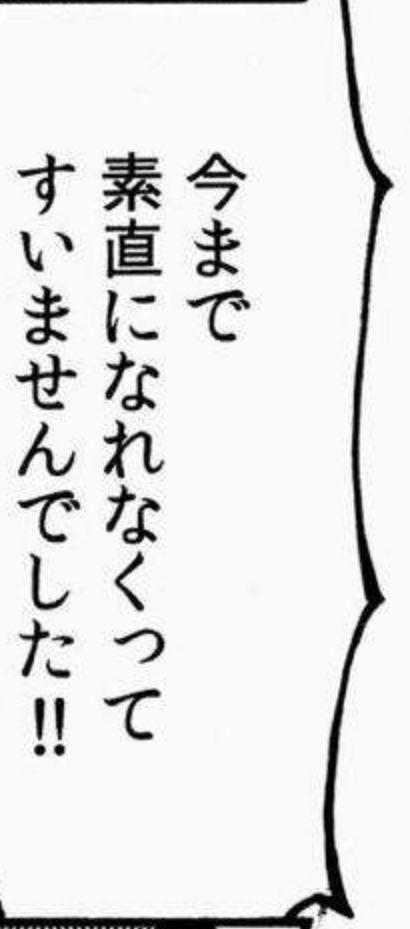 今まで
素直になれなくって
すいませんでした!!